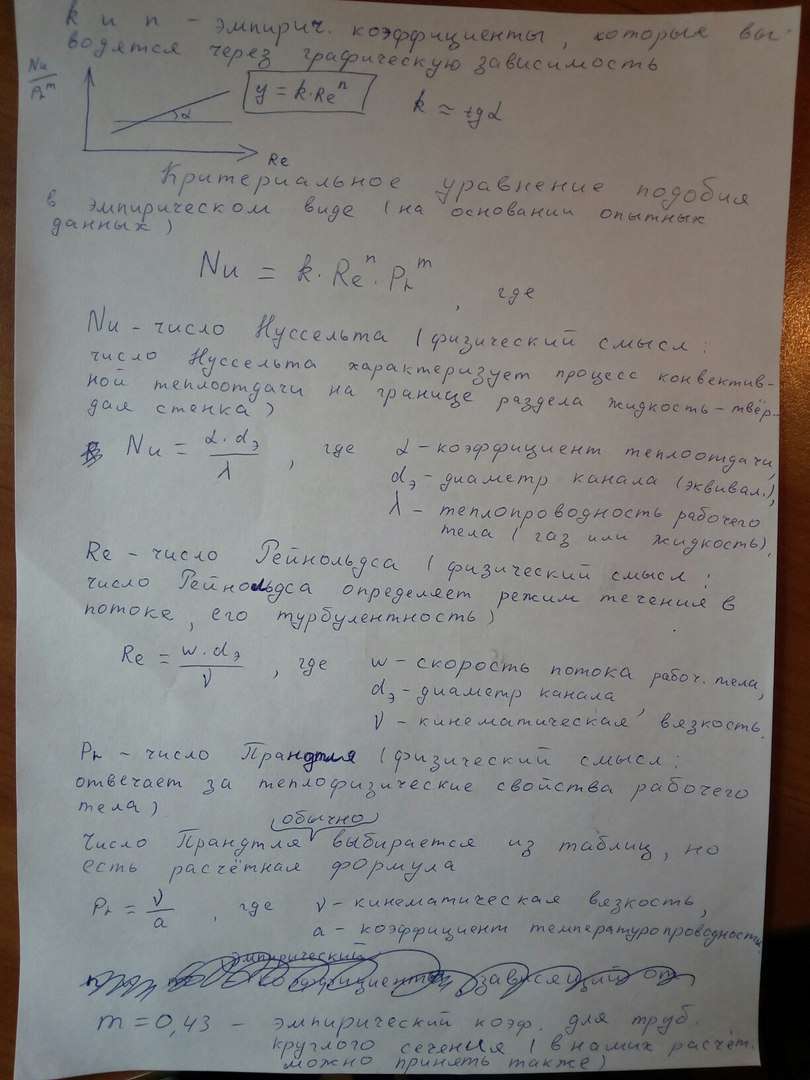 k и n - эмпирич. коэффициенты, которые вы-
водятся через графическую зависимость
Nu/Pr^m
y = k·Re^n
k ≈ tgα
α
Re
Критериальное уравнение подобия
в эмпирическом виде (на основании опытных
данных)
Nu = k·Re^n·Pr^m, где
Nu - число Нуссельта (физический смысл:
число Нуссельта характеризует процесс конвектив-
ной теплоотдачи на границе раздела жидкость-твёр-
дая стенка)
Nu = α·dэ/λ, где α - коэффициент теплоотдачи,
dэ - диаметр канала (эквивал.),
λ - теплопроводность рабочего
тела (газ или жидкость).
Re - число Рейнольдса (физический смысл:
число Рейнольдса определяет режим течения в
потоке, его турбулентность)
Re = w·dэ/ν, где w - скорость потока рабоч. тела,
dэ - диаметр канала,
ν - кинематическая вязкость.
Pr - число Прандтля (физический смысл:
отвечает за теплофизические свойства рабочего
тела)
обычно
Число Прандтля выбирается из таблиц, но
есть расчётная формула
Pr = ν/a, где ν - кинематическая вязкость,
a - коэффициент температуропроводности.
эмпирический
коэффициент зависящий от
m = 0,43 - эмпирический коэф. для труб.
круглого сечения (в наших расчёт.
можно принять также)